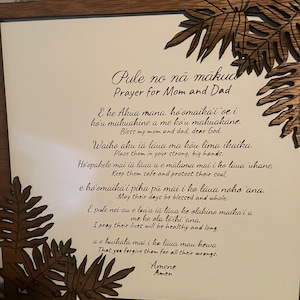 Pule no nā mākua
Prayer for Mom and Dad
E ke Akua mana, ho'omaika'i 'oe i
ko'u makuahine a me ko'u makuakāne.
Bless my mom and dad, dear God.
Waiho aku iā lāua ma kou lima ikaika.
Place them in your strong, big hands.
Ho'opakele mai iā lāua a e mālama mai i ko lāua 'uhane.
Keep them safe and protect their soul.
e ho'omaika'i piha pū mai i ko lāua noho 'ana.
May their days be blessed and whole.
E pule nei au e
I pray their lives will be healthy and long.
a e huikala mai i ko lāua mau hewa.
That you forgive them for all their wrongs.
Āmene
Amen